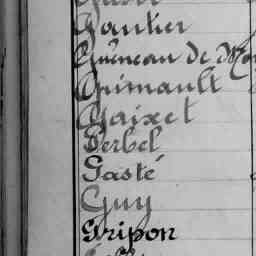 Gautier
Guéneau de
Grimault
Gaixet
Gerbel
Gasté
Guy
Gripon